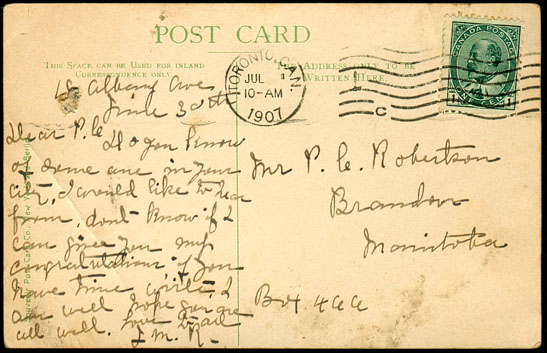 POST CARD
THIS SPACE CAN BE USED FOR INLAND
CORRESPONDENCE ONLY
ADDRESS ONLY TO BE
WRITTEN HERE
TORONTO, CAN.
JUL 1
10-AM
1907
C
CANADA POSTAGE
ONE CENT
18 Albany Ave
June 30th
Dear P. C.
Do you know
of some one in your
city, I would like to hear
from, don't know if I
can give you my
congratulations, if you
have time write, I
am well hope you are
all well. Love to all
J. M. R.
Mr P. C. Robertson
Brandon
Manitoba
Box 466